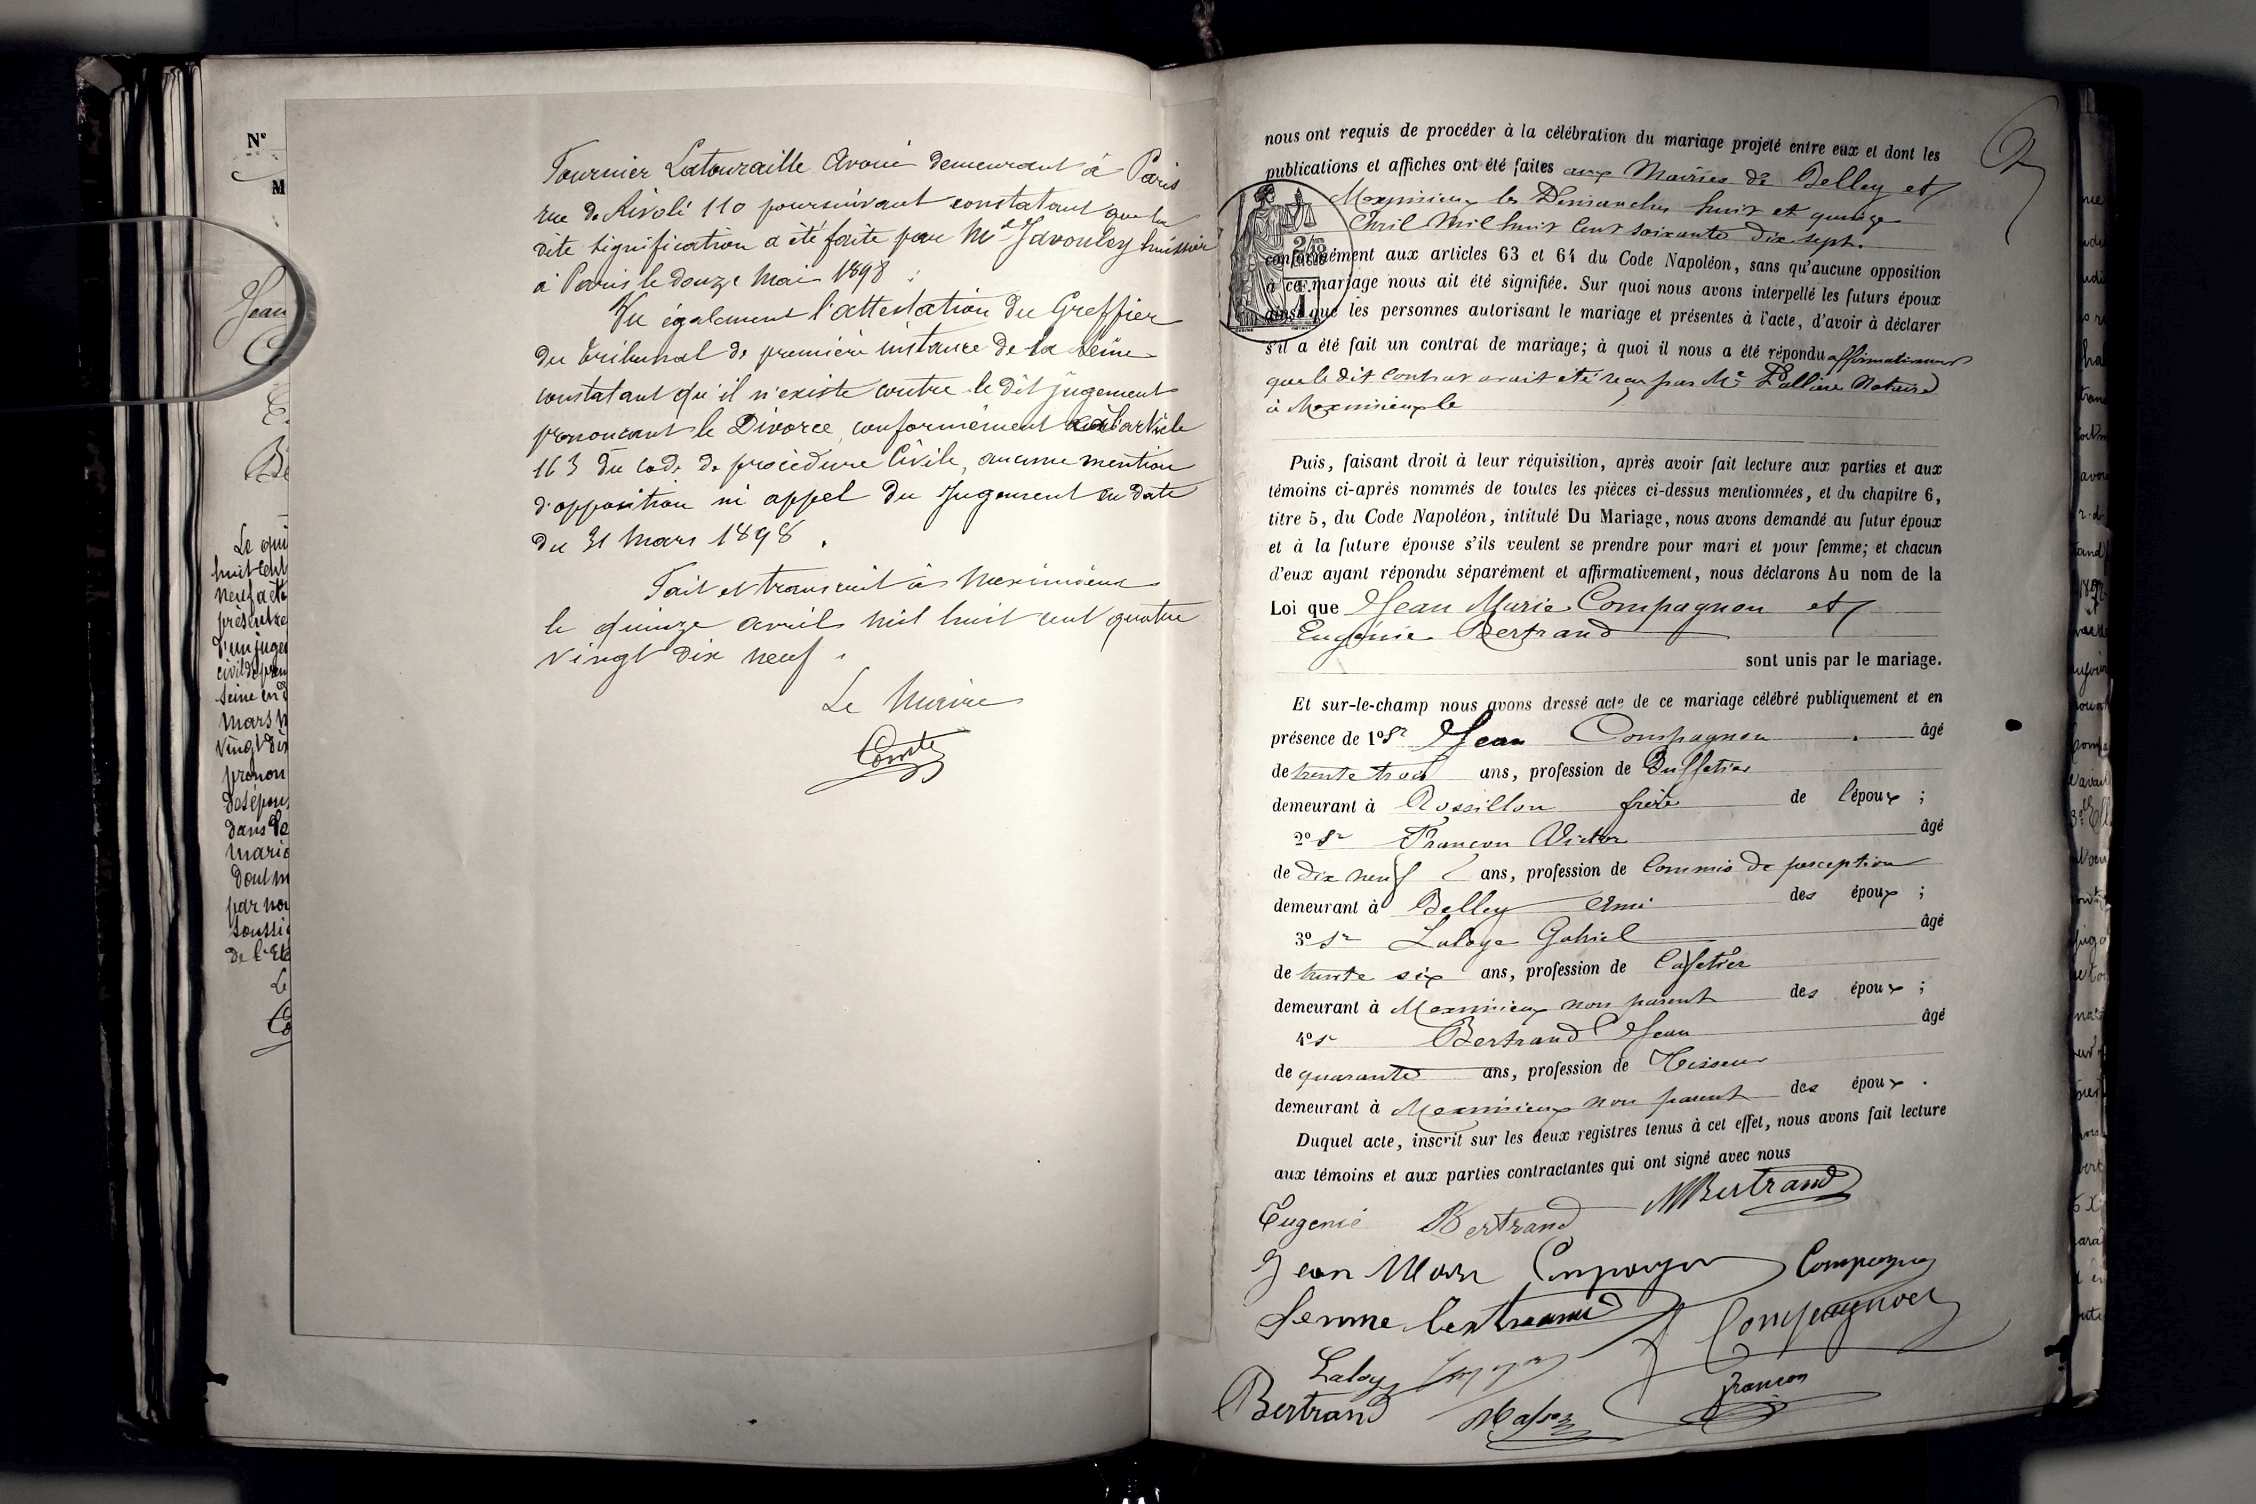 Nº
M
Jean
C
Bé
Le qui
huit cent
neuf acte
présente
d'un juge
civil de prem
Seine en d
Mars m
vingt dix
pronon
des épou
dans le
maria
dont m
par nou
soussi
de l'Eta
Le
Co
Fournier Latouraille Avoué demeurant à Paris
rue de Rivoli 110 poursuivant constatant que la
dite signification a été faite par Me huissier
à Paris le douze Mai 1898
Vu également l'attestation du Greffier
du tribunal de première instance de la Seine
constatant qu'il n'existe contre le dit jugement
prononcant le Divorce, conformément à l'article
163 du code de procédure Civile, aucune mention
d'opposition ni appel du Jugement en date
du 31 Mars 1898.
Fait et transcrit à Meximieux
le quinze avril mil huit cent quatre
vingt dix neuf.
Le Maire
nous ont requis de procéder à la célébration du mariage projeté entre eux et dont les
publications et affiches ont été faites aux Mairies de Belley et
Meximieux les Dimanches huit et quinze
Avril Mil huit Cent soixante dix sept.
conformément aux articles 63 et 64 du Code Napoléon, sans qu'aucune opposition
à ce mariage nous ait été signifiée. Sur quoi nous avons interpellé les futurs époux
ainsi que les personnes autorisant le mariage et présentes à l'acte, d'avoir à déclarer
s'il a été fait un contrat de mariage; à quoi il nous a été répondu affirmativement
que le dit Contrat avait été reçu par Me Notaire
à Meximieux le
Puis, faisant droit à leur réquisition, après avoir fait lecture aux parties et aux
témoins ci-après nommés de toutes les pièces ci-dessus mentionnées, et du chapitre 6,
titre 5, du Code Napoléon, intitulé Du Mariage, nous avons demandé au futur époux
et à la future épouse s'ils veulent se prendre pour mari et pour femme; et chacun
d'eux ayant répondu séparément et affirmativement, nous déclarons Au nom de la
Loi que Jean Marie Compagnon et
Eugénie Bertrand
sont unis par le mariage.
Et sur-le-champ nous avons dressé acte de ce mariage célébré publiquement et en
présence de 1º Sr Jean Compagnon âgé
de trente trois ans, profession de Buffetier
demeurant à Rossillon frère de l'époux;
2º Sr Françon Victor âgé
de dix neuf ans, profession de Commis de perception
demeurant à Belley Ami des époux;
3º Sr Laloge Gabriel âgé
de trente six ans, profession de Cafetier
demeurant à Meximieux non parent des époux;
4º Sr Bertrand Jean âgé
de quarante ans, profession de Tisseur
demeurant à Meximieux non parent des époux.
Duquel acte, inscrit sur les deux registres tenus à cet effet, nous avons fait lecture
aux témoins et aux parties contractantes qui ont signé avec nous
MBertrand
Eugenie Bertrand
Jean Marie Compagnon Compagnon
femme bertrand Compagnon
Laloge
françon
Bertrand